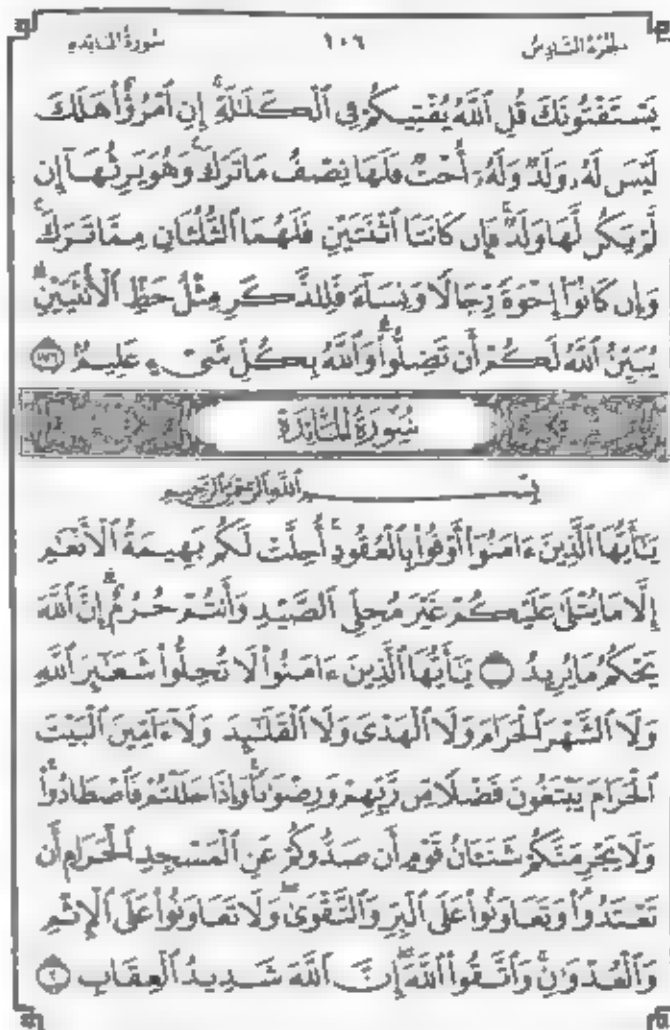 الجزء السادس ١٠٦ سورة المائدة
يَسْتَفْتُونَكَ قُلِ ٱللَّهُ يُفْتِيكُمْ فِي ٱلْكَلَٰلَةِ ۚ إِنِ ٱمْرُؤٌا۟ هَلَكَ
لَيْسَ لَهُۥ وَلَدٌ وَلَهُۥٓ أُخْتٌ فَلَهَا نِصْفُ مَا تَرَكَ ۚ وَهُوَ يَرِثُهَآ إِن
لَّمْ يَكُن لَّهَا وَلَدٌ ۚ فَإِن كَانَتَا ٱثْنَتَيْنِ فَلَهُمَا ٱلثُّلُثَانِ مِمَّا تَرَكَ ۚ
وَإِن كَانُوٓا۟ إِخْوَةً رِّجَالًا وَنِسَآءً فَلِلذَّكَرِ مِثْلُ حَظِّ ٱلْأُنثَيَيْنِ ۗ
يُبَيِّنُ ٱللَّهُ لَكُمْ أَن تَضِلُّوا۟ ۗ وَٱللَّهُ بِكُلِّ شَىْءٍ عَلِيمٌۢ ١٧٦
سُورَةُ المَائِدَةِ
بِسْمِ ٱللَّهِ ٱلرَّحْمَٰنِ ٱلرَّحِيمِ
يَٰٓأَيُّهَا ٱلَّذِينَ ءَامَنُوٓا۟ أَوْفُوا۟ بِٱلْعُقُودِ ۚ أُحِلَّتْ لَكُم بَهِيمَةُ ٱلْأَنْعَٰمِ
إِلَّا مَا يُتْلَىٰ عَلَيْكُمْ غَيْرَ مُحِلِّى ٱلصَّيْدِ وَأَنتُمْ حُرُمٌ ۗ إِنَّ ٱللَّهَ
يَحْكُمُ مَا يُرِيدُ ١ يَٰٓأَيُّهَا ٱلَّذِينَ ءَامَنُوا۟ لَا تُحِلُّوا۟ شَعَٰٓئِرَ ٱللَّهِ
وَلَا ٱلشَّهْرَ ٱلْحَرَامَ وَلَا ٱلْهَدْىَ وَلَا ٱلْقَلَٰٓئِدَ وَلَآ ءَآمِّينَ ٱلْبَيْتَ
ٱلْحَرَامَ يَبْتَغُونَ فَضْلًا مِّن رَّبِّهِمْ وَرِضْوَٰنًا ۚ وَإِذَا حَلَلْتُمْ فَٱصْطَادُوا۟ ۚ
وَلَا يَجْرِمَنَّكُمْ شَنَـَٔانُ قَوْمٍ أَن صَدُّوكُمْ عَنِ ٱلْمَسْجِدِ ٱلْحَرَامِ أَن
تَعْتَدُوا۟ ۘ وَتَعَاوَنُوا۟ عَلَى ٱلْبِرِّ وَٱلتَّقْوَىٰ ۖ وَلَا تَعَاوَنُوا۟ عَلَى ٱلْإِثْمِ
وَٱلْعُدْوَٰنِ ۚ وَٱتَّقُوا۟ ٱللَّهَ ۖ إِنَّ ٱللَّهَ شَدِيدُ ٱلْعِقَابِ ٢